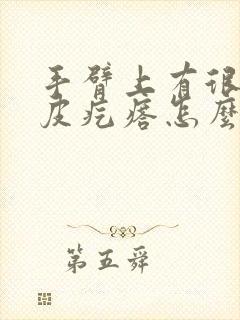 手臂上有很
皮疙瘩怎麼
第五舜